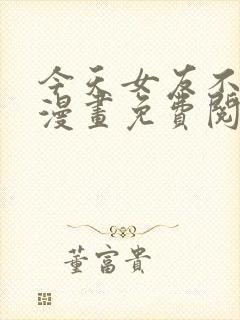 今天女友不
漫畫免費閱
董富貴